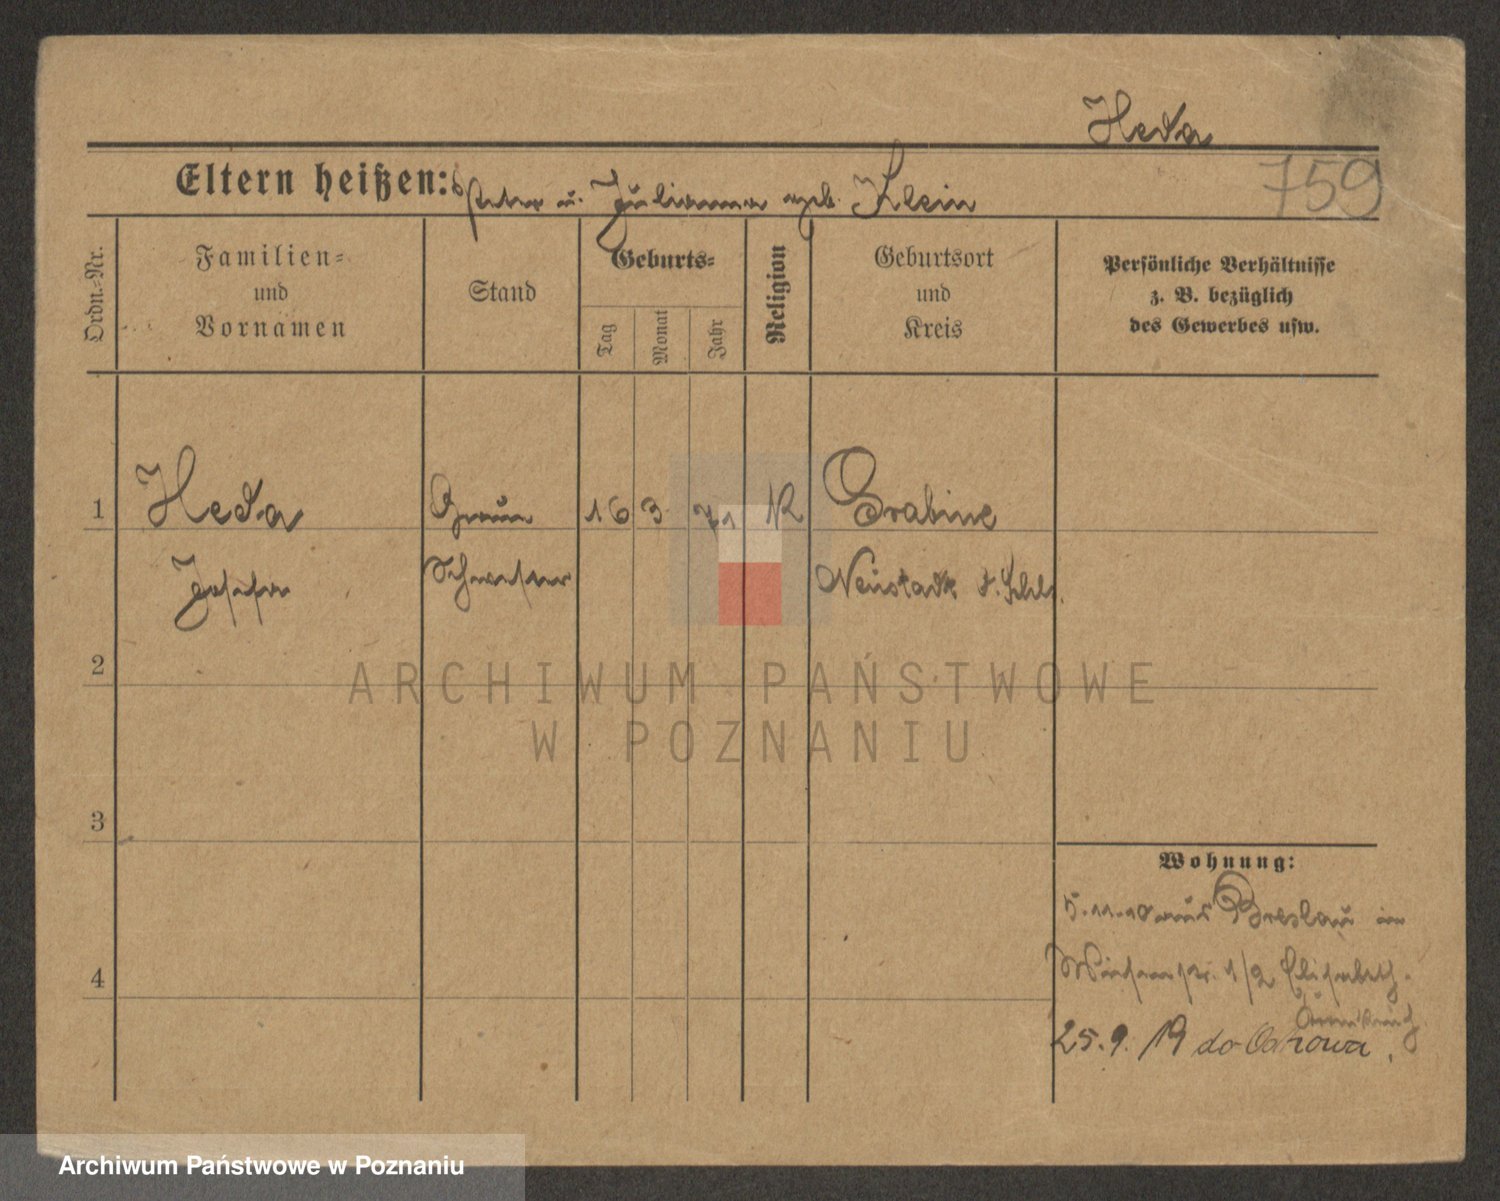 Heda
759
Eltern heißen: Peter u. Julianna geb. Klein
Ordn.-Nr.
Familien-
und
Vornamen
Stand
Geburts-
Tag
Monat
Jahr
Religion
Geburtsort
und
Kreis
Persönliche Verhältnisse
z. B. bezüglich
des Gewerbes usw.
1 Heda Graue 16 3 71 K Grabine
Josefa Schwester Neustadt O. Schls.
2
3
4
Wohnung:
5.11.10 aus Breslau in
1/2 Elisabeth-
25.9.19 do
ARCHIWUM PAŃSTWOWE
W POZNANIU
Archiwum Państwowe w Poznaniu